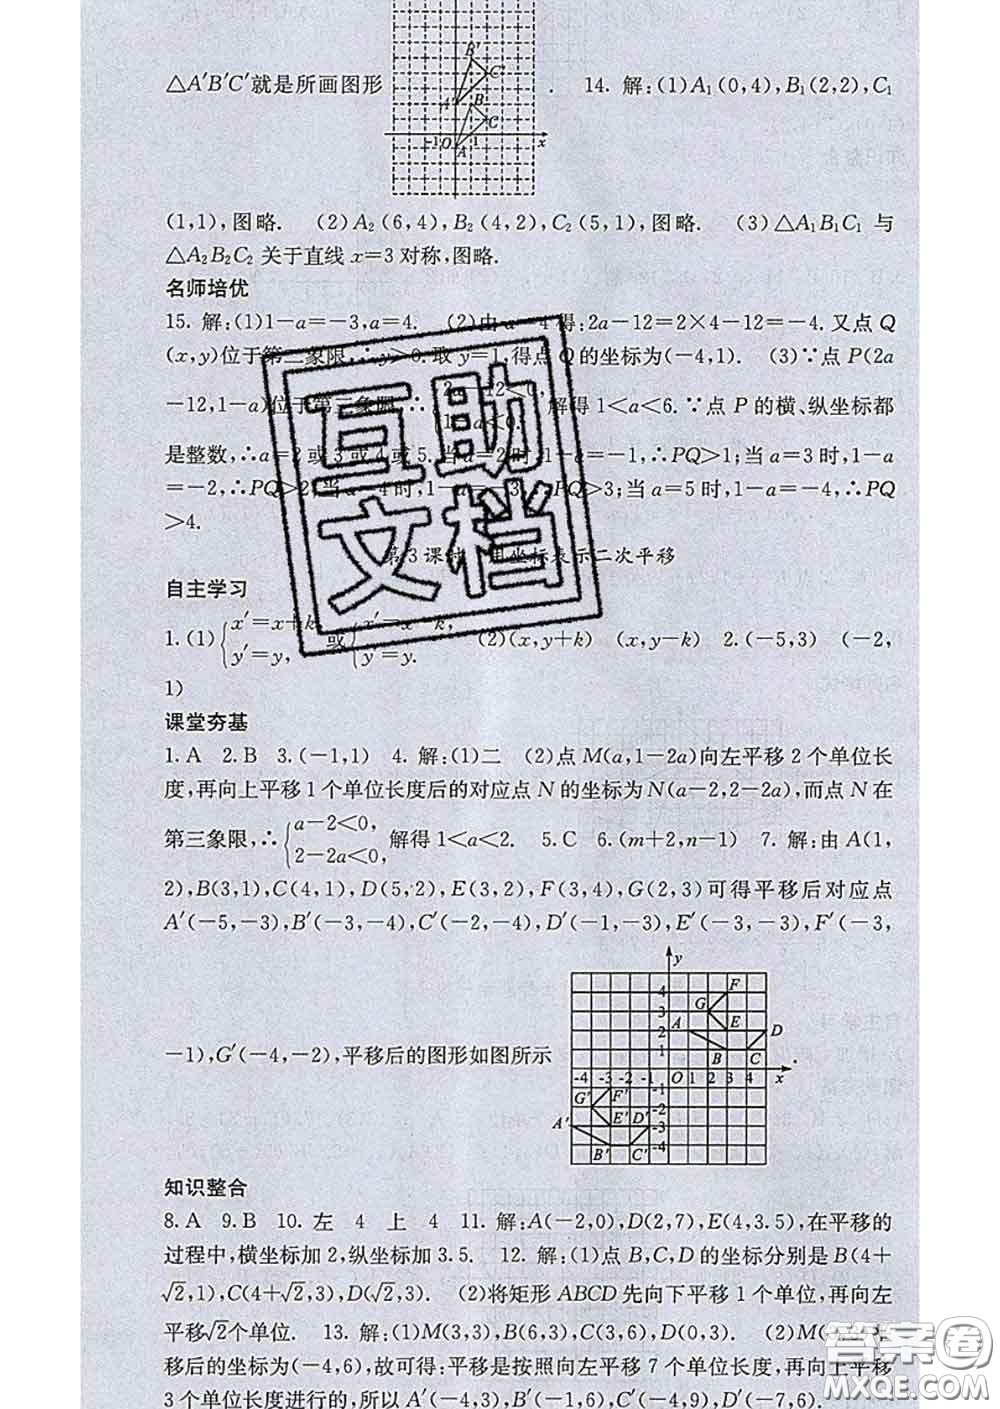 △A′B′C′就是所画图形 . 14. 解:(1)A₁(0,4),B₁(2,2),C₁
B′ C′ A′ B C -1 O 1 A x
(1,1),图略. (2)A₂(6,4),B₂(4,2),C₂(5,1),图略. (3)△A₁B₁C₁ 与
△A₂B₂C₂ 关于直线 x=3 对称,图略.
名师培优
15. 解:(1)1-a=-3,a=4. (2)由 a=4 得:2a-12=2×4-12=-4. 又点 Q
(x,y)位于第二象限,∴y>0. 取 y=1,得点 Q 的坐标为(-4,1). (3)∵点 P(2a
-12,1-a)位于第三象限,∴{2a-12<0, 1-a<0. 解得 1<a<6. ∵点 P 的横、纵坐标都
是整数,∴a=2 或 3 或 4 或 5. 当 a=2 时,1-a=-1,∴PQ>1;当 a=3 时,1-a
=-2,∴PQ>2;当 a=4 时,1-a=-3,∴PQ>3;当 a=5 时,1-a=-4,∴PQ
>4.
第 3 课时 用坐标表示二次平移
自主学习
1. (1){x′=x+k, y′=y, 或{x′=x-k, y′=y. (2)(x,y+k) (x,y-k) 2.(-5,3) (-2,
1)
课堂夯基
1. A 2. B 3.(-1,1) 4. 解:(1)二 (2)点 M(a,1-2a)向左平移 2 个单位长
度,再向上平移 1 个单位长度后的对应点 N 的坐标为 N(a-2,2-2a),而点 N 在
第三象限,∴{a-2<0, 2-2a<0, 解得 1<a<2. 5. C 6.(m+2,n-1) 7. 解:由 A(1,
2),B(3,1),C(4,1),D(5,2),E(3,2),F(3,4),G(2,3)可得平移后对应点
A′(-5,-3),B′(-3,-4),C′(-2,-4),D′(-1,-3),E′(-3,-3),F′(-3,
-1),G′(-4,-2),平移后的图形如图所示 .
y
4 F
3 G
2 A E D
1 B C
-4 -3 -2 -1 O 1 2 3 4 x
-1
G′ F′ -2
A′ E′ D′ -3
B′ C′ -4
知识整合
8. A 9. B 10. 左 4 上 4 11. 解:A(-2,0),D(2,7),E(4,3.5),在平移的
过程中,横坐标加 2,纵坐标加 3.5. 12. 解:(1)点 B,C,D 的坐标分别是 B(4+
√2,1),C(4+√2,3),D(√2,3). (2)将矩形 ABCD 先向下平移 1 个单位,再向左
平移√2个单位. 13. 解:(1)M(3,3),B(6,3),C(3,6),D(0,3). (2)M(3,3)平
移后的坐标为(-4,6),故可得:平移是按照向左平移 7 个单位长度,再向上平移
3 个单位长度进行的,所以 A′(-4,3),B′(-1,6),C′(-4,9),D′(-7,6).
互助
文档
答案圈
MXQE.COM